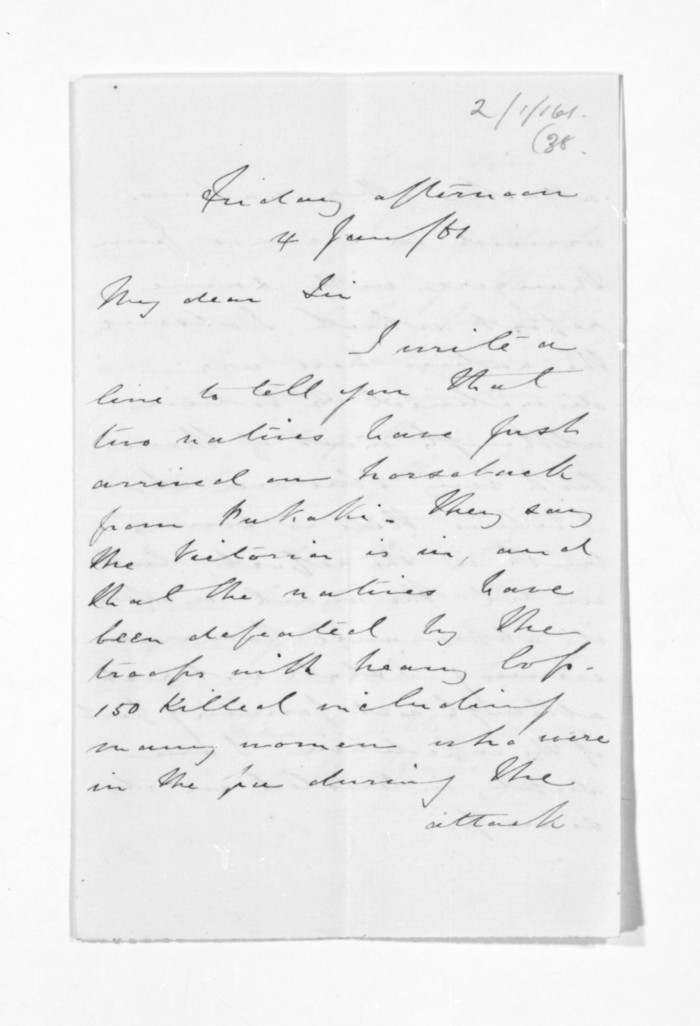 2/1/161.
(38.
Friday afternoon
4 Jan/61
My dear Sir
I write a
line to tell you that
two natives have just
arrived on horseback
from Pukaki. They say
the Victoria is in, and
that the natives have
been defeated by the
troops with heavy loss.
150 Killed including
many women who were
in the pa during the
attack